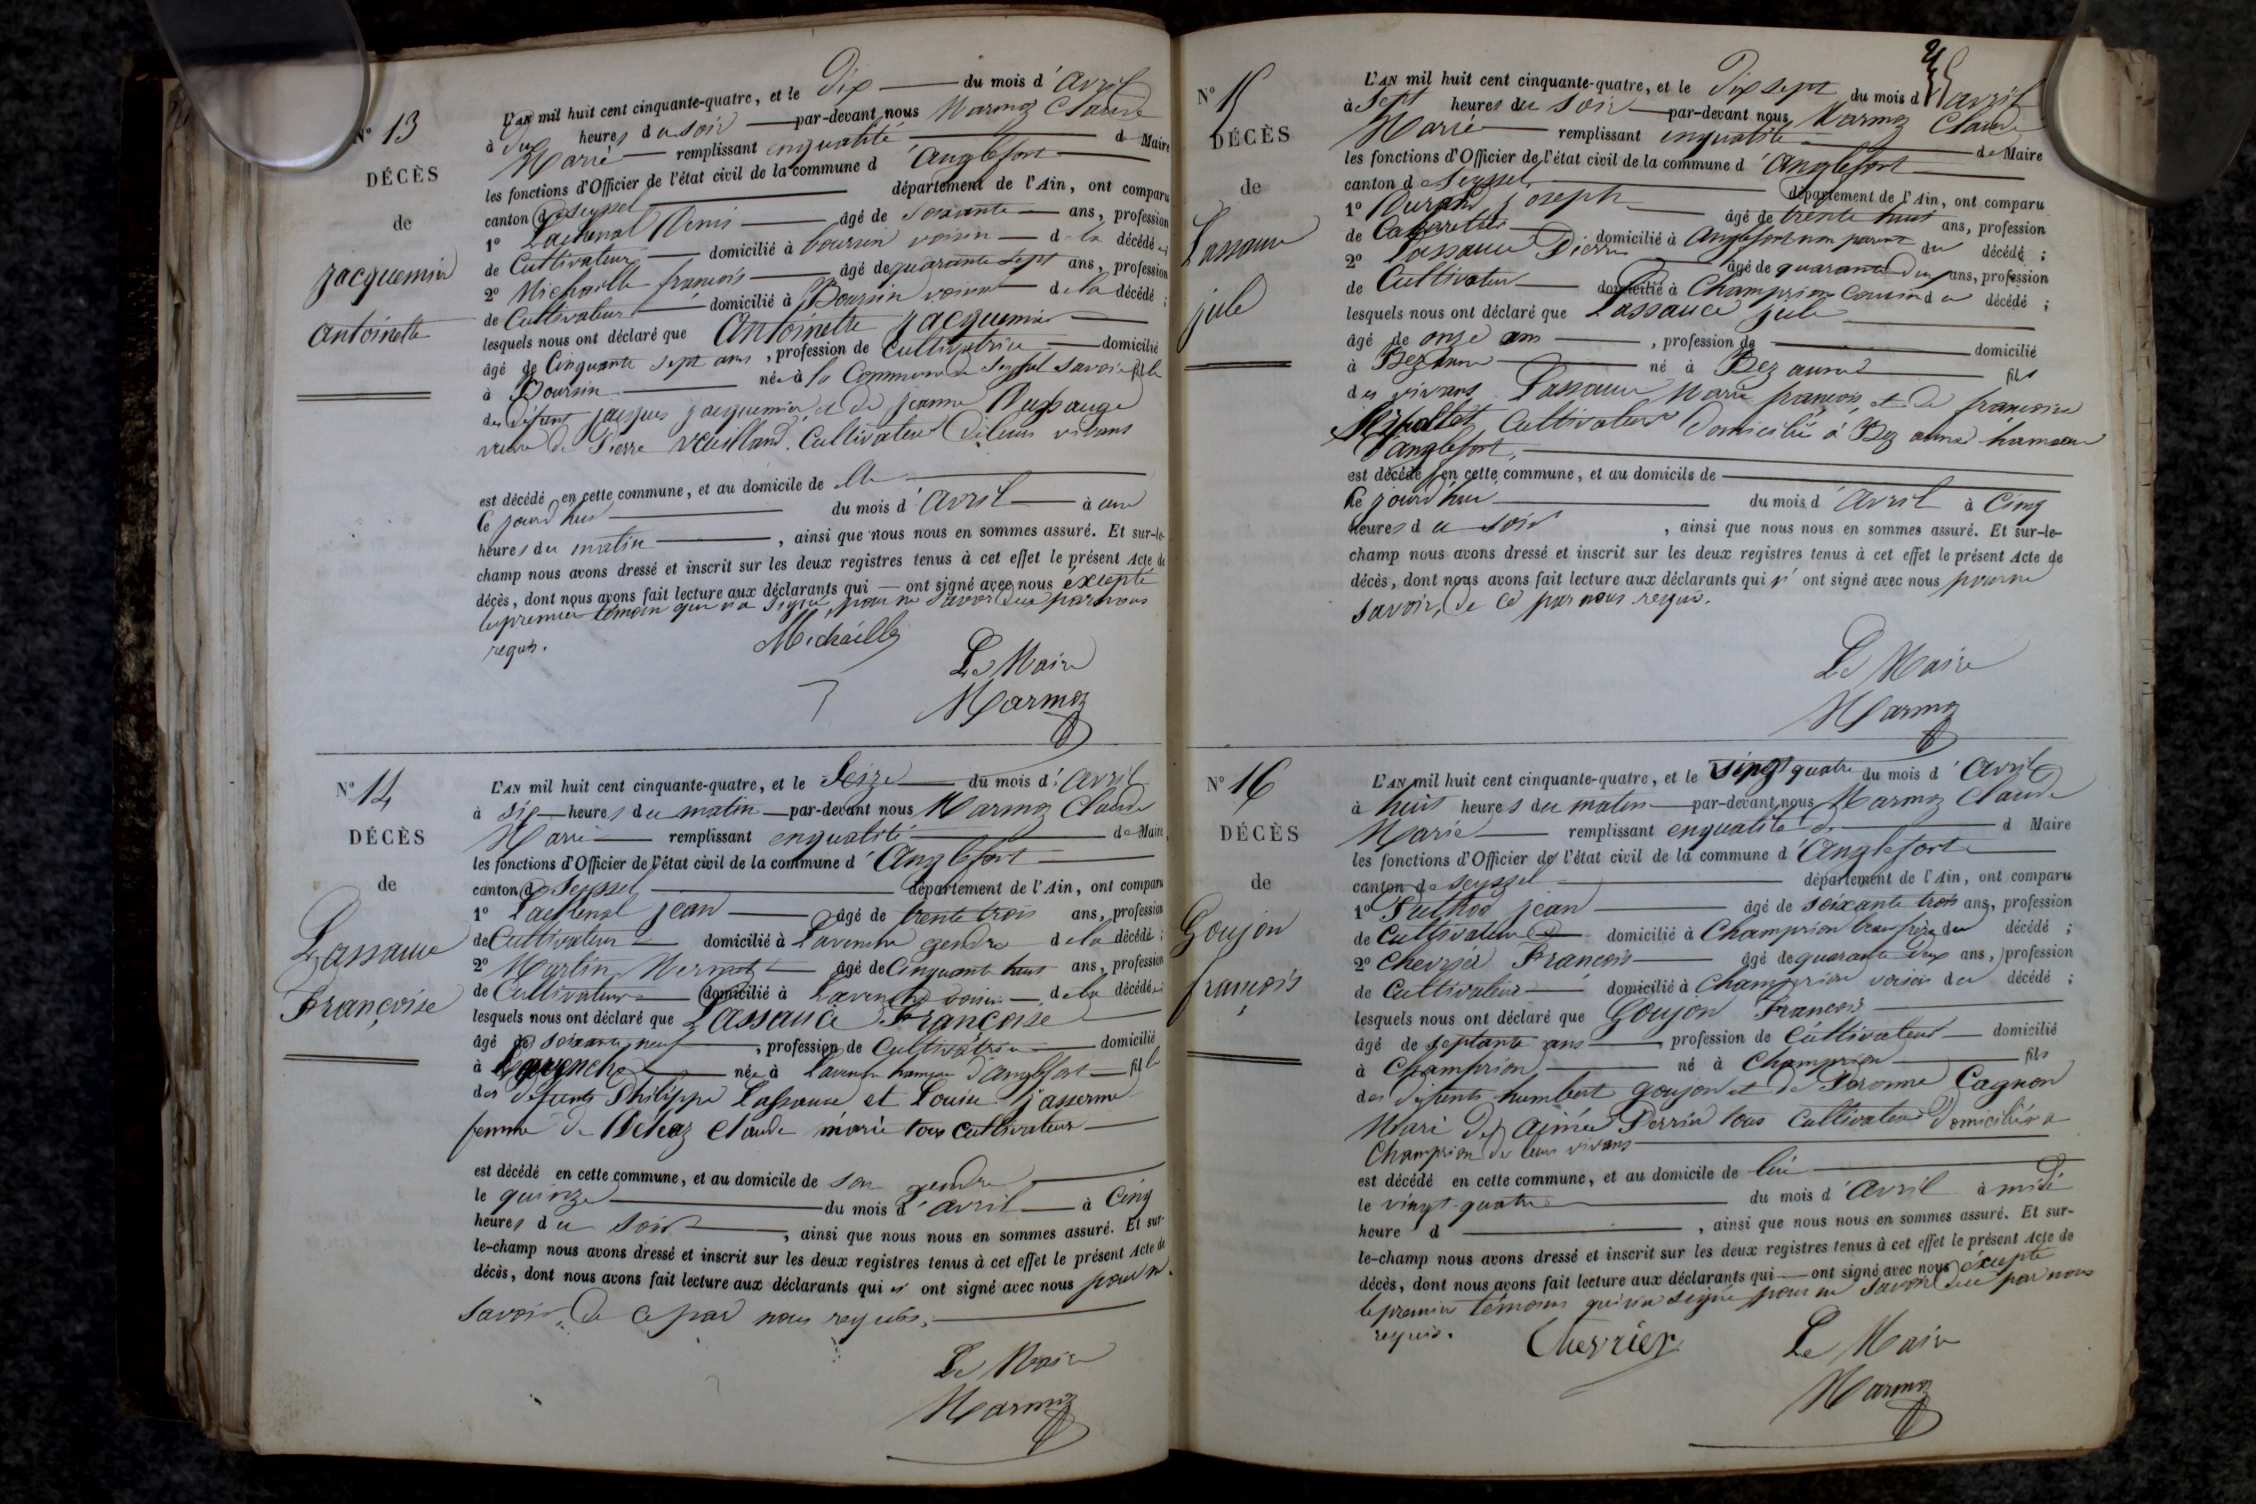 N° 13
DÉCÈS
de
jacquemin
antoinette
L'AN mil huit cent cinquante-quatre, et le Dix du mois d'avril
à dix heures du soir par-devant nous Marmoz Claude
Marie remplissant en qualité de Maire
les fonctions d'Officier de l'état civil de la commune d'Anglefort
canton de Seyssel département de l'Ain, ont comparu
1° Lachenal Denis âgé de soixante ans, profession
de Cultivateur domicilié à Boursin voisin de la décédée
2° Michaille françois âgé de quarante sept ans, profession
de Cultivateur domicilié à Boursin voisin de la décédé ;
lesquels nous ont déclaré que Antoinette jacquemin
âgé de Cinquante sept ans, profession de Cultivatrice domicilié
à Boursin née à la Commune de Seyssel savoie fille
des défunt jacques jacquemin et de jeanne
veuve de Pierre Cultivateur de leurs vivans
est décédé en cette commune, et au domicile de elle
Ce jourd'hui du mois d'avril à une
heures du matin, ainsi que nous nous en sommes assuré. Et sur-le-
champ nous avons dressé et inscrit sur les deux registres tenus à cet effet le présent Acte de
décès, dont nous avons fait lecture aux déclarants qui ont signé avec nous éxcepté
le premier témoin qui n'a signé pour ne savoir de ce par nous
requis.
Michaille
Le Maire
Marmoz
N° 14
DÉCÈS
de
Lassauce
Françoise
L'AN mil huit cent cinquante-quatre, et le Seize du mois d'avril
à six heures du matin par-devant nous Marmoz Claude
Marie remplissant en qualité de Maire
les fonctions d'Officier de l'état civil de la commune d'Anglefort
canton de Seyssel département de l'Ain, ont comparu
1° Lachenal jean âgé de trente trois ans, profession
de Cultivateur domicilié à Lavenche gendre de la décédé ;
2° Martin âgé de Cinquante huit ans, profession
de Cultivateur domicilié à Lavenche voisin de la décédée
lesquels nous ont déclaré que Lassauce Françoise
âgé de soixante neuf, profession de Cultivatrice domicilié
à Lavenche née à Lavenche hameau d'anglefort fille
des défunts Philippe Lassauce et Louise jasserme
femme de Claude marie tous cultivateur
est décédé en cette commune, et au domicile de son gendre
le quinze du mois d'avril à Cinq
heures du soir, ainsi que nous nous en sommes assuré. Et sur-
le-champ nous avons dressé et inscrit sur les deux registres tenus à cet effet le présent Acte de
décès, dont nous avons fait lecture aux déclarants qui n' ont signé avec nous pour ne
savoir, de ce par nous requis.
Le Maire
Marmoz
N° 15
DÉCÈS
de
Lassauce
jule
L'AN mil huit cent cinquante-quatre, et le Dix sept du mois d'avril
à sept heures du soir par-devant nous Marmoz Claude
Marie remplissant en qualité de Maire
les fonctions d'Officier de l'état civil de la commune d'Anglefort
canton de Seyssel département de l'Ain, ont comparu
1° Durand joseph âgé de trente huit ans, profession
de Cabaretier domicilié à Anglefort non parent du décédé ;
2° Lassauce Pierre âgé de quarante Deux ans, profession
de Cultivateur domicilié à Champrion Cousin du décédé ;
lesquels nous ont déclaré que Lassauce jule
âgé de onze ans, profession de domicilié
à Bezaune né à Bezaune fils
des vivans Lassauce Marie françois et de françoise
Cultivateur Domicilié à Bezaune hameau
d'anglefort,
est décédé en cette commune, et au domicile de
Ce jourd'hui du mois d'avril à Cinq
heures du soir, ainsi que nous nous en sommes assuré. Et sur-le-
champ nous avons dressé et inscrit sur les deux registres tenus à cet effet le présent Acte de
décès, dont nous avons fait lecture aux déclarants qui n' ont signé avec nous pour ne
savoir, de ce par nous requis.
Le Maire
Marmoz
N° 16
DÉCÈS
de
Goujon
françois
L'AN mil huit cent cinquante-quatre, et le vingt quatre du mois d'Avril
à huit heures du matin par-devant nous Marmoz Claude
Marie remplissant en qualité de d Maire
les fonctions d'Officier de l'état civil de la commune d'Anglefort
canton de Seyssel département de l'Ain, ont comparu
1° Puthod jean âgé de soixante trois ans, profession
de Cultivateur domicilié à Champrion beau frère du décédé ;
2° Chevrier Francois âgé de quarante Deux ans, profession
de Cultivateur domicilié à Champrion voisin du décédé ;
lesquels nous ont déclaré que Goujon Francois
âgé de septante ans profession de Cultivateur domicilié
à Champrion né à Champrion fils
des defunts humbert goujon et de Peronne Cagnon
Mari de aimée Perrin tous Cultivateur Domiciliés à
Champrion de leurs vivans
est décédé en cette commune, et au domicile de lui
le vingt-quatre du mois d'Avril à midi
heure d, ainsi que nous nous en sommes assuré. Et sur-
le-champ nous avons dressé et inscrit sur les deux registres tenus à cet effet le présent Acte de
décès, dont nous avons fait lecture aux déclarants qui ont signé avec nous éxcepté
le premier témoins qui n'a signé pour ne savoir de ce par nous
requis.
Chevrier
Le Maire
Marmoz